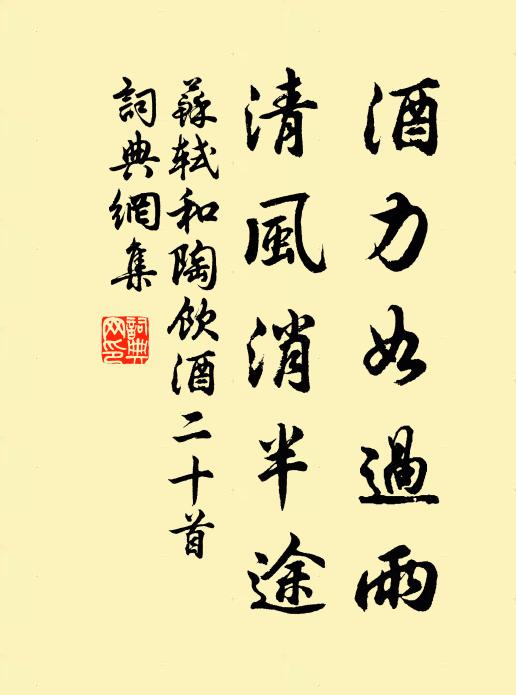 酒力如過雨
清風消半途
蘇軾和陶飲酒二十首
詞典網集
詞典
网印